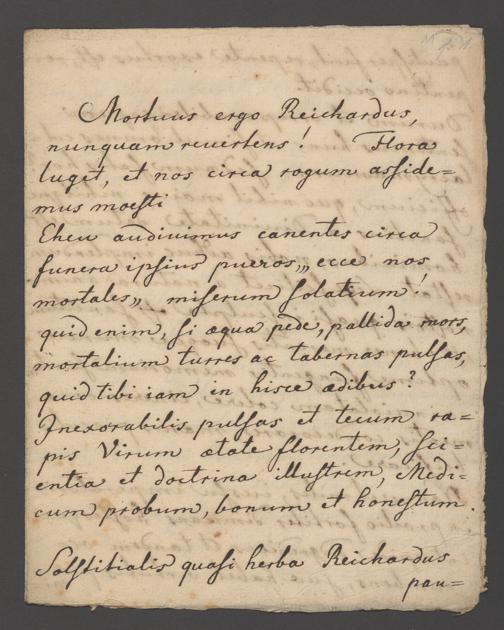 Mortuus ergo Reichardus,
nunquam revertens! Flora
luget, et nos circa rogum asside=
mus moesti
Eheu audivimus canentes circa
funera ipsius pueros „ ecce nos
mortales „ miserum solatium!
quid enim, si æqua pede, pallida mors,
mortalium turres ac tabernas pulsas,
quid tibi iam in hisce ædibus?
Inexorabilis pulsas et tecum ra=
pis Virum ætate florentem, sci=
entia et doctrina illustrem, Medi=
cum probum, bonum et honestum.
Solstitialis quasi herba Reichardus
pau=